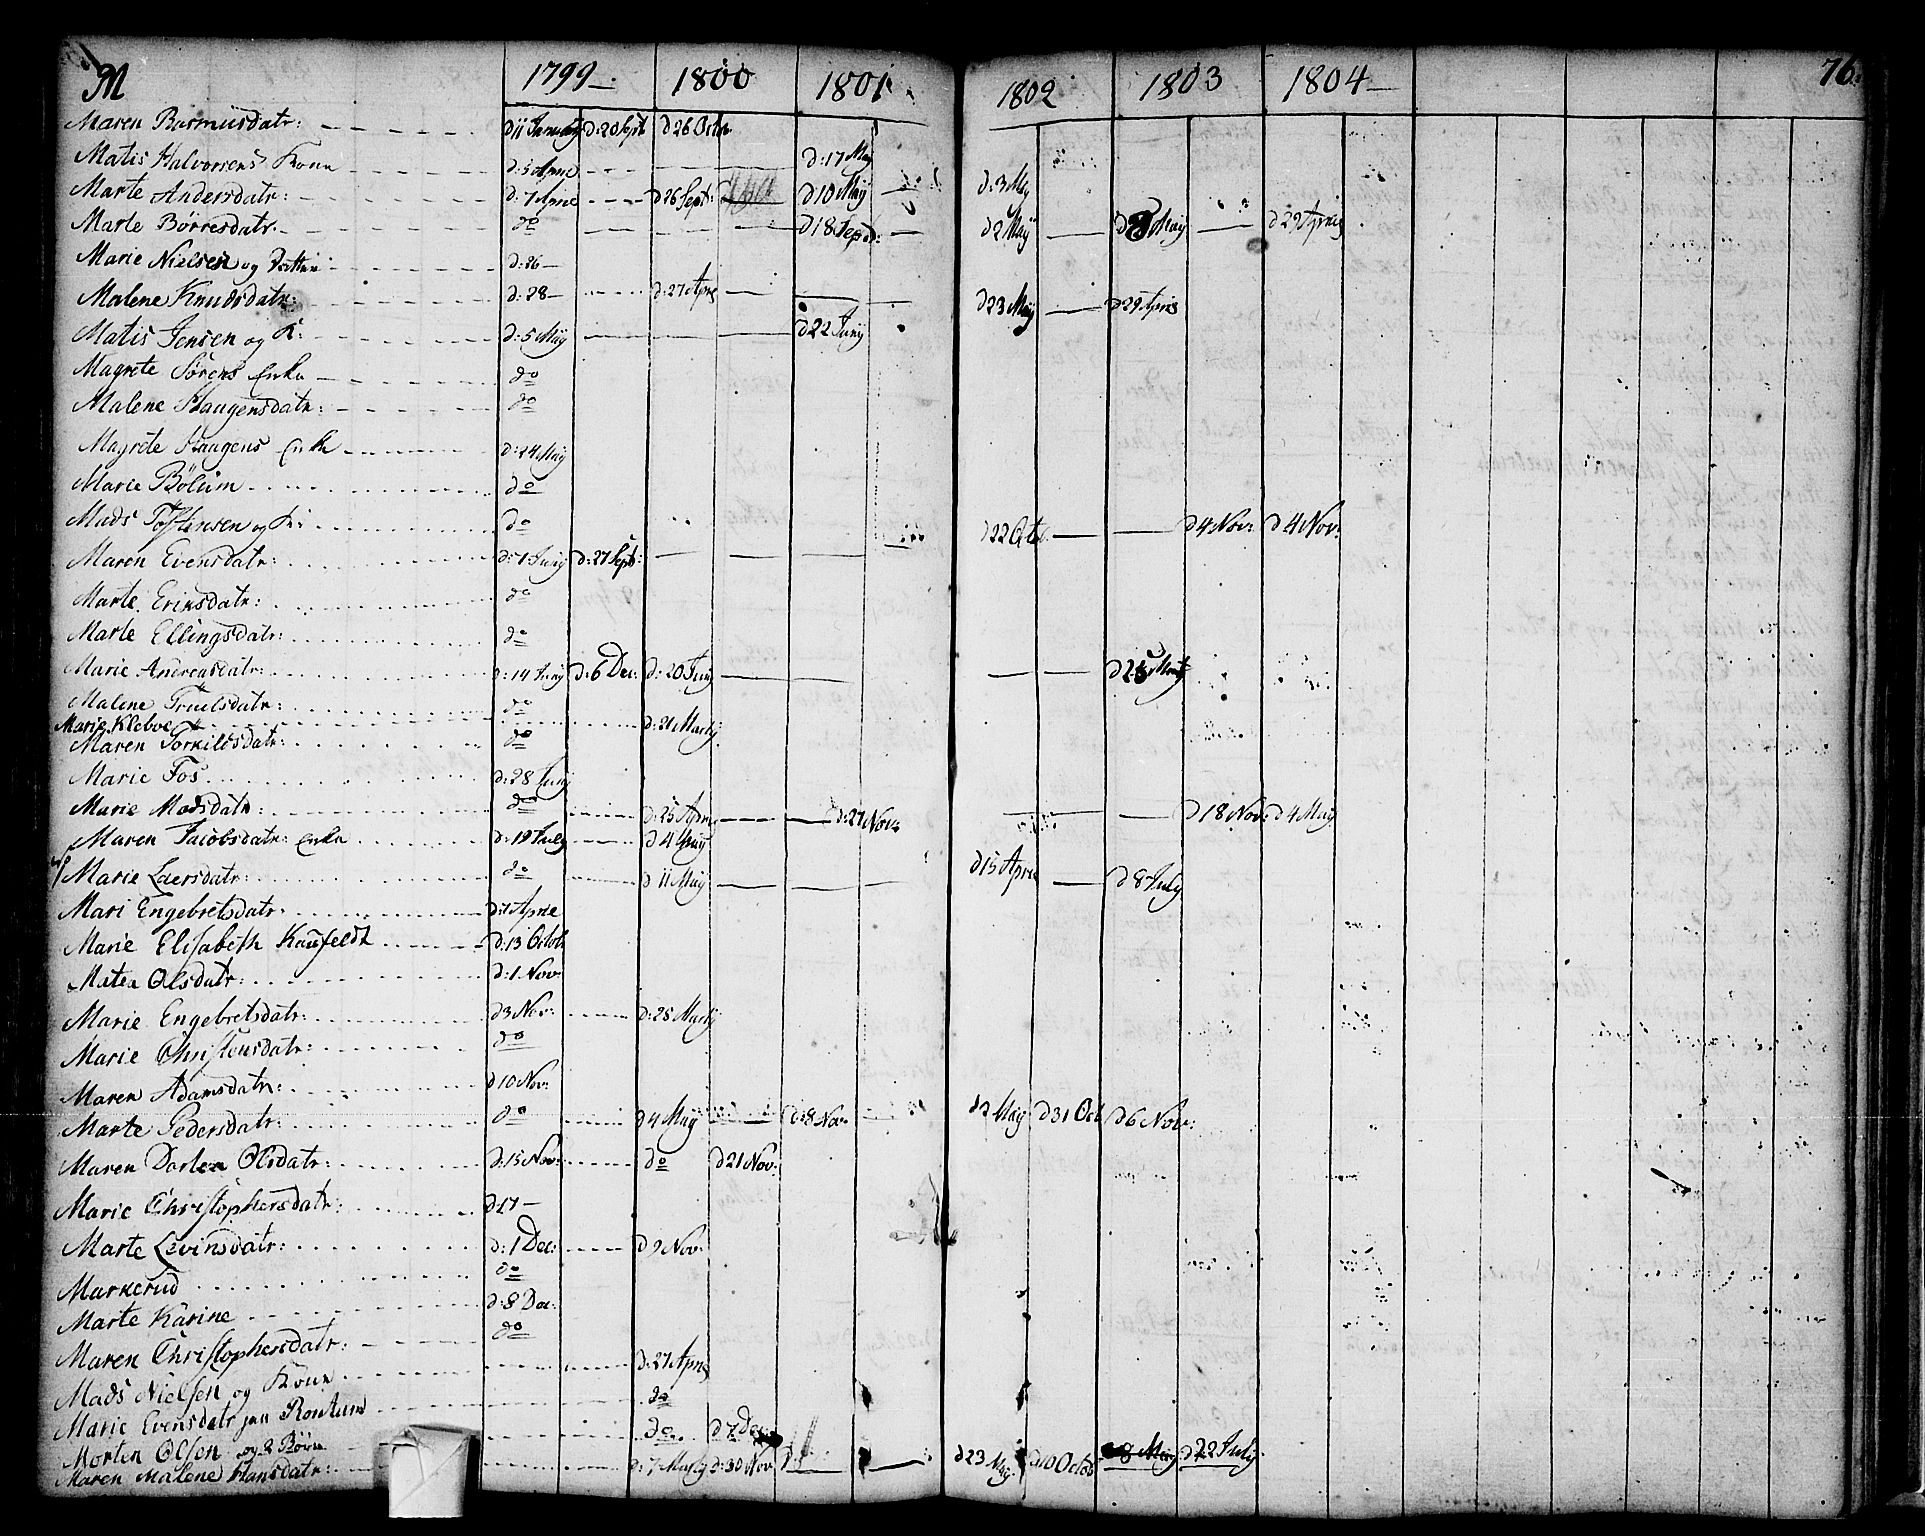 M 1799 1800 1801 1802 1803 1804 76.
Maren Rasmusdatr: d 11 January d: 20 Sept d 26 Octbr
Matis Halvorsens Kone d: 5 April d: 17 May
Marte Andersdatr: d: 7 April d 26 Sept: d 10 Maÿ d: 3 May
Marte Börresdatr. do d 18 Septb: d 2 Maÿ May d 29 April
Marie Nielsen og datter d: 26
Malene Knudsdatr: d: 28 d: 27 April d 23 Maÿ d 29 April
Matis Jensen og K: d: 5 Maÿ d 22 Junÿ
Magrete Sörens Enke do
Malene Haugensdatr: do
Magrete Haugens Enke d: 24 Maÿ
Marie Bölum do
Mads Töstensen og K: do d 22 Oct d 4 Nov: d 4 Nov:
Maren Evensdatr: d: 7 Junÿ d: 27 Sept:
Marte Eriksdatr: do
Marte Ellingsdatr: do
Marie Andreasdatr: d: 14 Junÿ d: 6 Dec: d: 20 Junÿ
Malene Truelsdatr: do
Marie Kleboe d: 21 Martÿ
Maren Torkildsdatr: do
Marie Fos d: 28 Junÿ
Marie Madsdatr: do d: 25 April d: 27 Nov: d 18 Nov: d 4 May
Maren Jacobsdatr: Enke d: 19 July d 4 Maÿ
Marie Laersdatr: do d 11 Maÿ d 15 April d 8 July
Mari Engebretsdatr: d: 7 April
Marie Elisabeth Kaufeldt d: 13 Octob
Matea Olsdatr: d: 1 Nov:
Marie Engebretsdatr: d 3 Nov: d: 25 Martÿ
Marie Christensdatr: do
Maren Adamsdatr: d 10 Nov:
Marte Pedersdatr: do d 4 Maÿ d: 8 Nov: d 2 May d 31 Oct d 6 Nov:
Maren Dortea Olsdatr: d: 15 Nov: do d 21 Nov:
Marie Christophersdatr: d 17
Marte Levinsdatr: d: 1 Dec: d 9 Nov:
Markerud do
Marte Karine d: 8 Dec:
Maren Christophersdatr: do
Mads Nielsen og Kone d: 27 April
Marie Evensdatr do
Morten Olsen og 2 Börn do d 7 Dec
Maren Malene Hansdatr: d: 7 Martÿ d: 30 Nov d 23 May d 10 Octob 8 May d 22 July